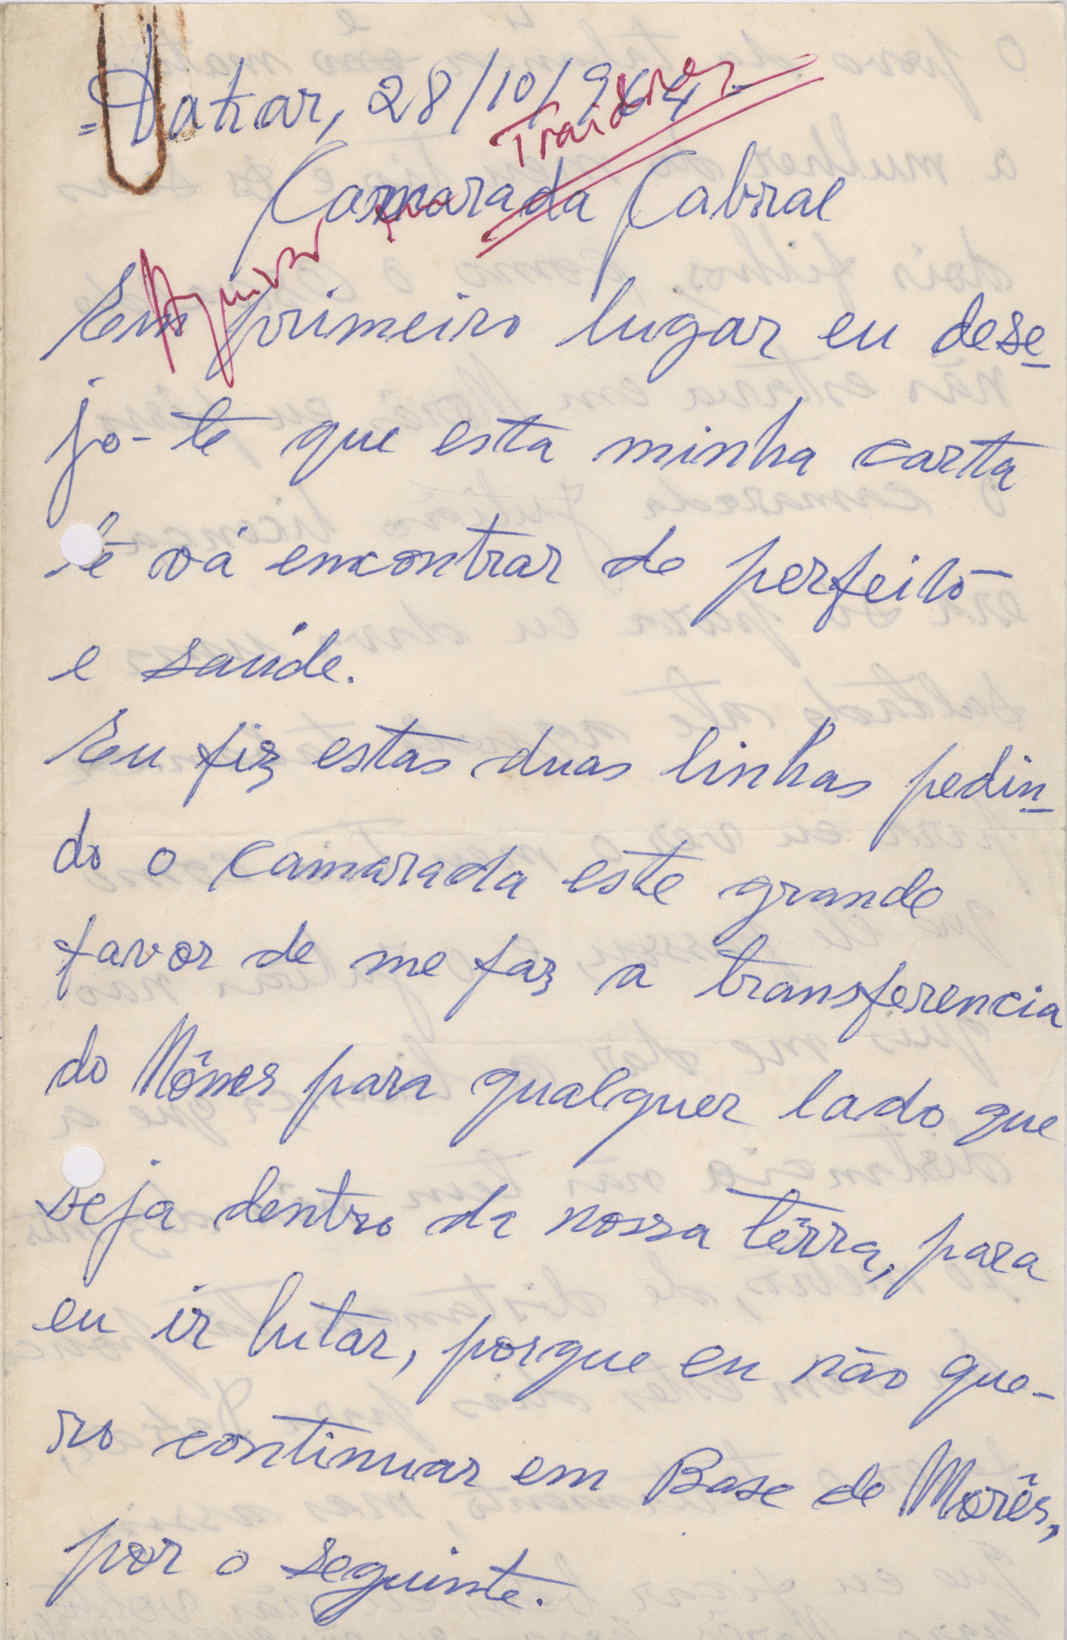 = Dakar, 28/10/964.
Traidores
Camarada Cabral
Arquivar
Em primeiro lugar eu dese-
jo-te que esta minha carta
te vá encontrar de perfeito
e saúde.
Eu fiz estas duas linhas pedin-
do o camarada este grande
favor de me faz a transferencia
do Môrres para qualquer lado que
seja dentro da nossa térra, para
eu ir lutar, porque eu não que-
ro continuar em Base de Morês,
por o seguinte.